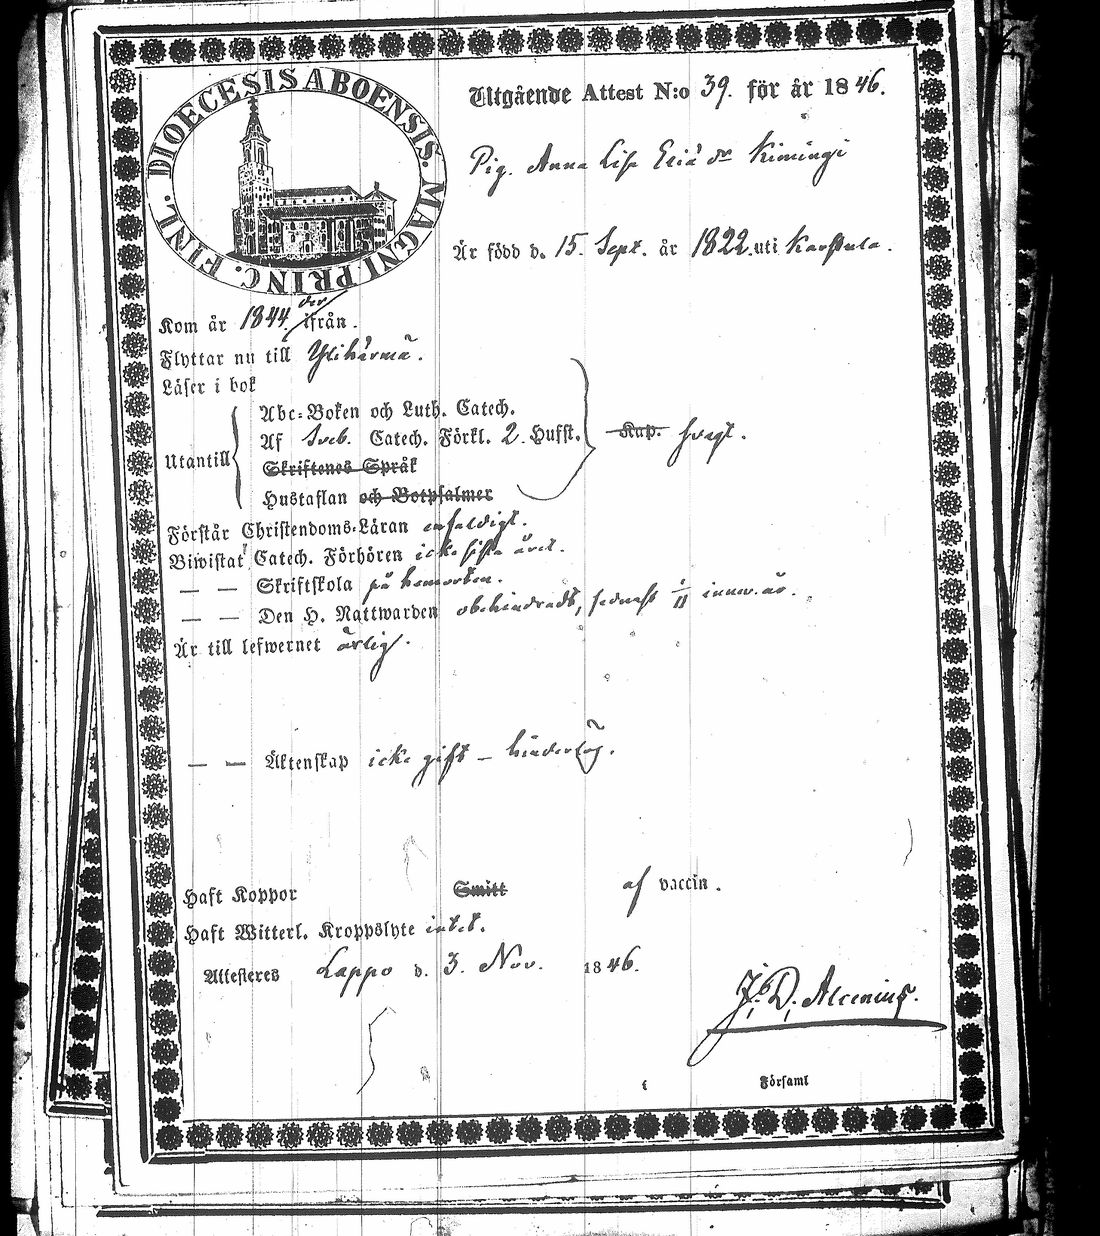 DIOECESIS ABOENSIS. MAGNI PRINC. FINL.
Utgående Attest N:o 39. för år 1846.
Pig. Anna Lisa Eliä dr Kimingi
Är född d. 15. Sept. år 1822. uti Karstula.
Kom år 1844. der ifrån.
Flyttar nu till Ylihärmä.
Läser i bok
Abc-Boken och Luth. Catech.
Utantill Af Sveb. Catech. Förkl. 2 Hufst. Kap. svagt.
Skriftenes Språk
Hustaflan och Botpsalmer
Förstår Christendoms-Läran enfaldigt.
Biwistat Catech. Förhören icke sista året.
— — Skriftskola på hemorten.
— — Den H. Nattwarden obehindradt, sednast 1/11 innev. år.
Är till lefwernet ärlig.
— — Äktenskap icke gift – hinderlös.
Haft Koppor Smitt af vaccin.
Haft Witterl. Kroppslyte intet.
Attesteres Lappo d. 3. Nov. 1846.
J. D. Alcenius.
Församl